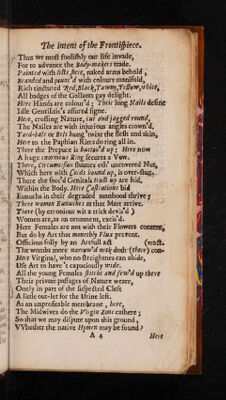 The intent of the Frontispiece.
Thus we most foolishly our life invade,
For to advance the Body-makers trade.
Painted with lists here, naked arms behold;
Branded and paunc'd with colours manifold,
Rich tinctured Red, Black, Tawny, Yellow, white,
All badges of the Gallants gay delight.
Here Hands are colour'd; Their long Nails define
Idle Gentilitie's assured signe.
Here, crossing Nature, cut and jagged round,
The Nailes are with injurious angles crown'd.
Yard-balls or Bells hung 'twixt the flesh and skin,
Here to the Paphian Rites do ring all in.
There the Prepuce is button'd up; Here now
A huge enormous Ring secures a Vow.
There, Circumcision shames eth' uncovered Nut,
Which here with Cords bound up, is over-shut.
There the seed Genitals truss'd up are hid,
Within the Body. Here Castrations bid
Eunuchs in their degraded manhood thrive;
There women Eunuches at that Mart arrive.
There (by erronious wit a trick devis'd)
Women are, as an ornament, circis'd.
Here Females are not with their Flowers content,
But do by Art that monethly Flux prevent.
Officious folly by an Artfull act
The wombs more narrow'd neck doth (there) contract.
Here Virgins, who no streightnes can abide,
Use Art to have 't capaciously wide.
All the young Females stitcht and sew'd up there
Their private passages of Nature weare,
Onely in part of the suspected Cleft
A little out-let for the Urine left.
As an unprofitable membrane, here,
The Midwives do the Virgin Zone cashere;
So that we may dispute upon this ground,
VVhether the native Hymen may be found?
A 4
Here